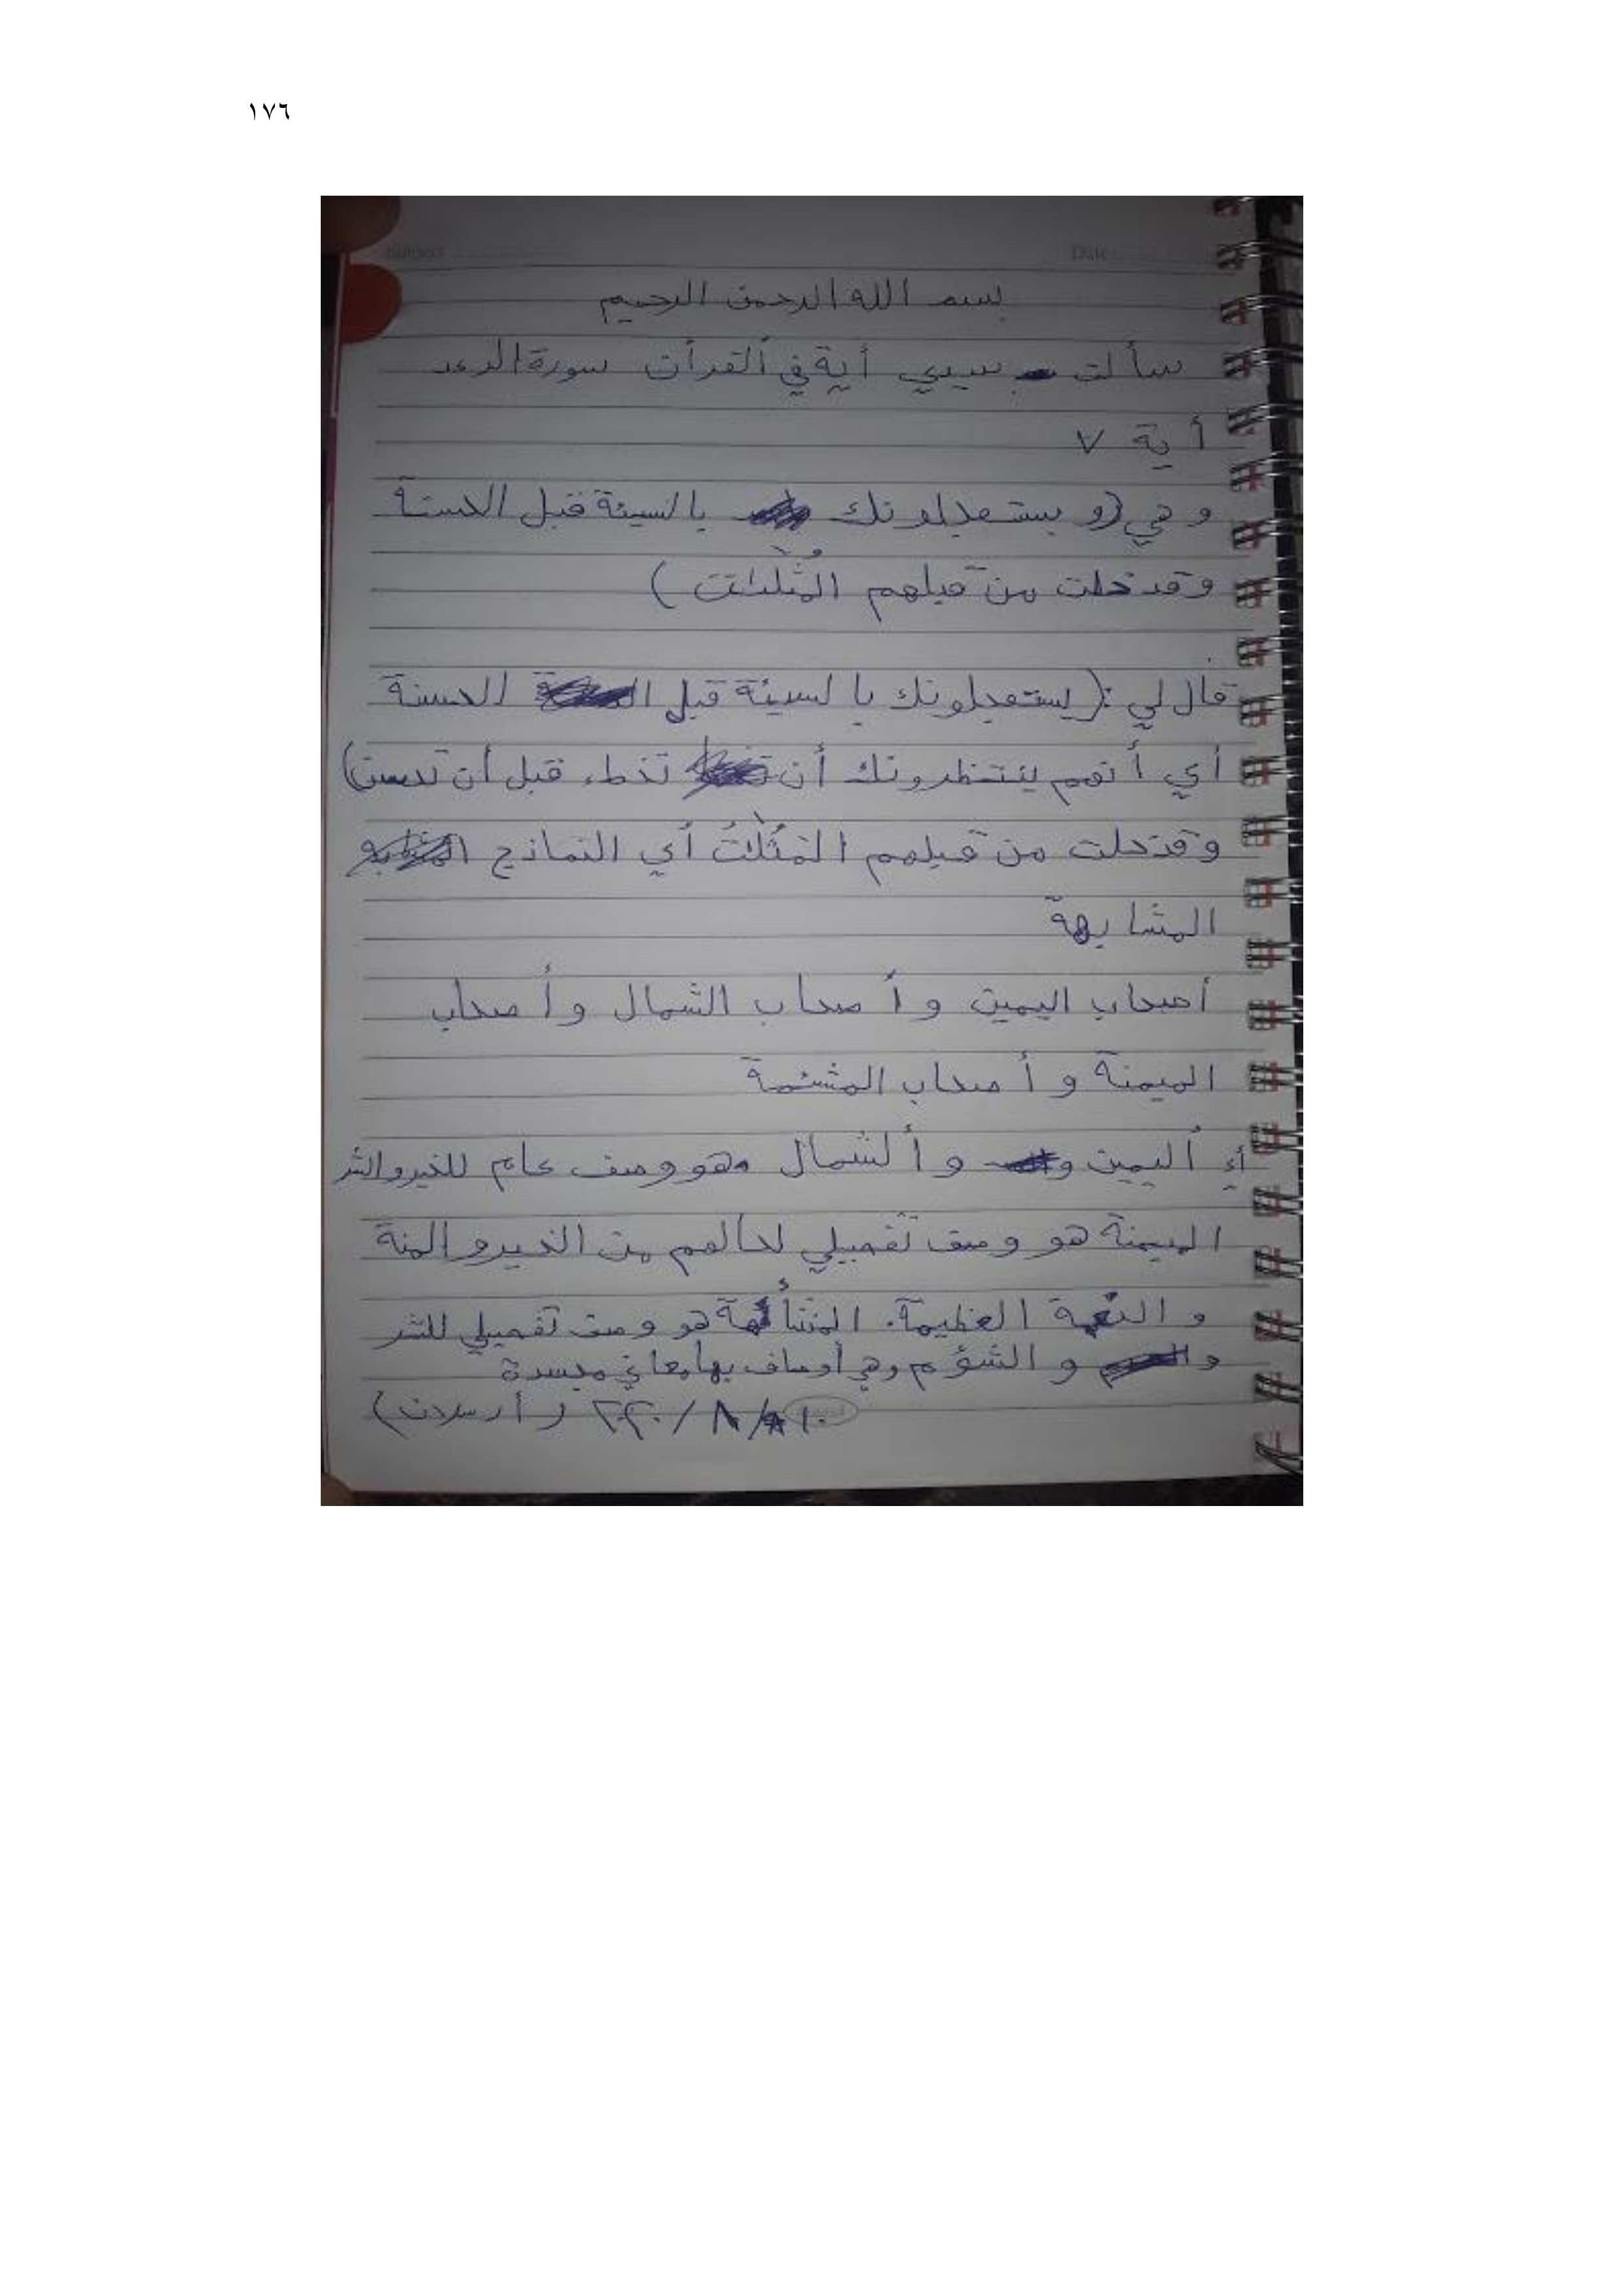 ١٧٦
Subject
Date
بسم الله الرحمن الرحيم
سألت سيدي أية في القرأن سورة الرعد
أية ٧
وهي (ويستعجلونك بالسيئة قبل الحسنة
وقد خلت من قبلهم المُثلٰت)
قال لي :(يستعجلونك بالسيئة قبل الحسنة
أي أنهم ينتظرونك أن تخطء قبل أن تحسن)
وقد خلت من قبلهم المَثُلٰتُ أي النماذج
المشابهة
أصحاب اليمين وأصحاب الشمال وأصحاب
الميمنة وأصحاب المشئمة
أي أليمين و وألشمال هو وصف عام للخير والشر
الميمنة هو وصف تفصيلي لحالهم من الخير والمنة
والنعمة العظيمة. المشأمة هو وصف تفصيلي للشر
و والشؤم وهي أوصاف بها معاني مجسدة
١٠/٨/٢٠٢٠ (أرسلان)